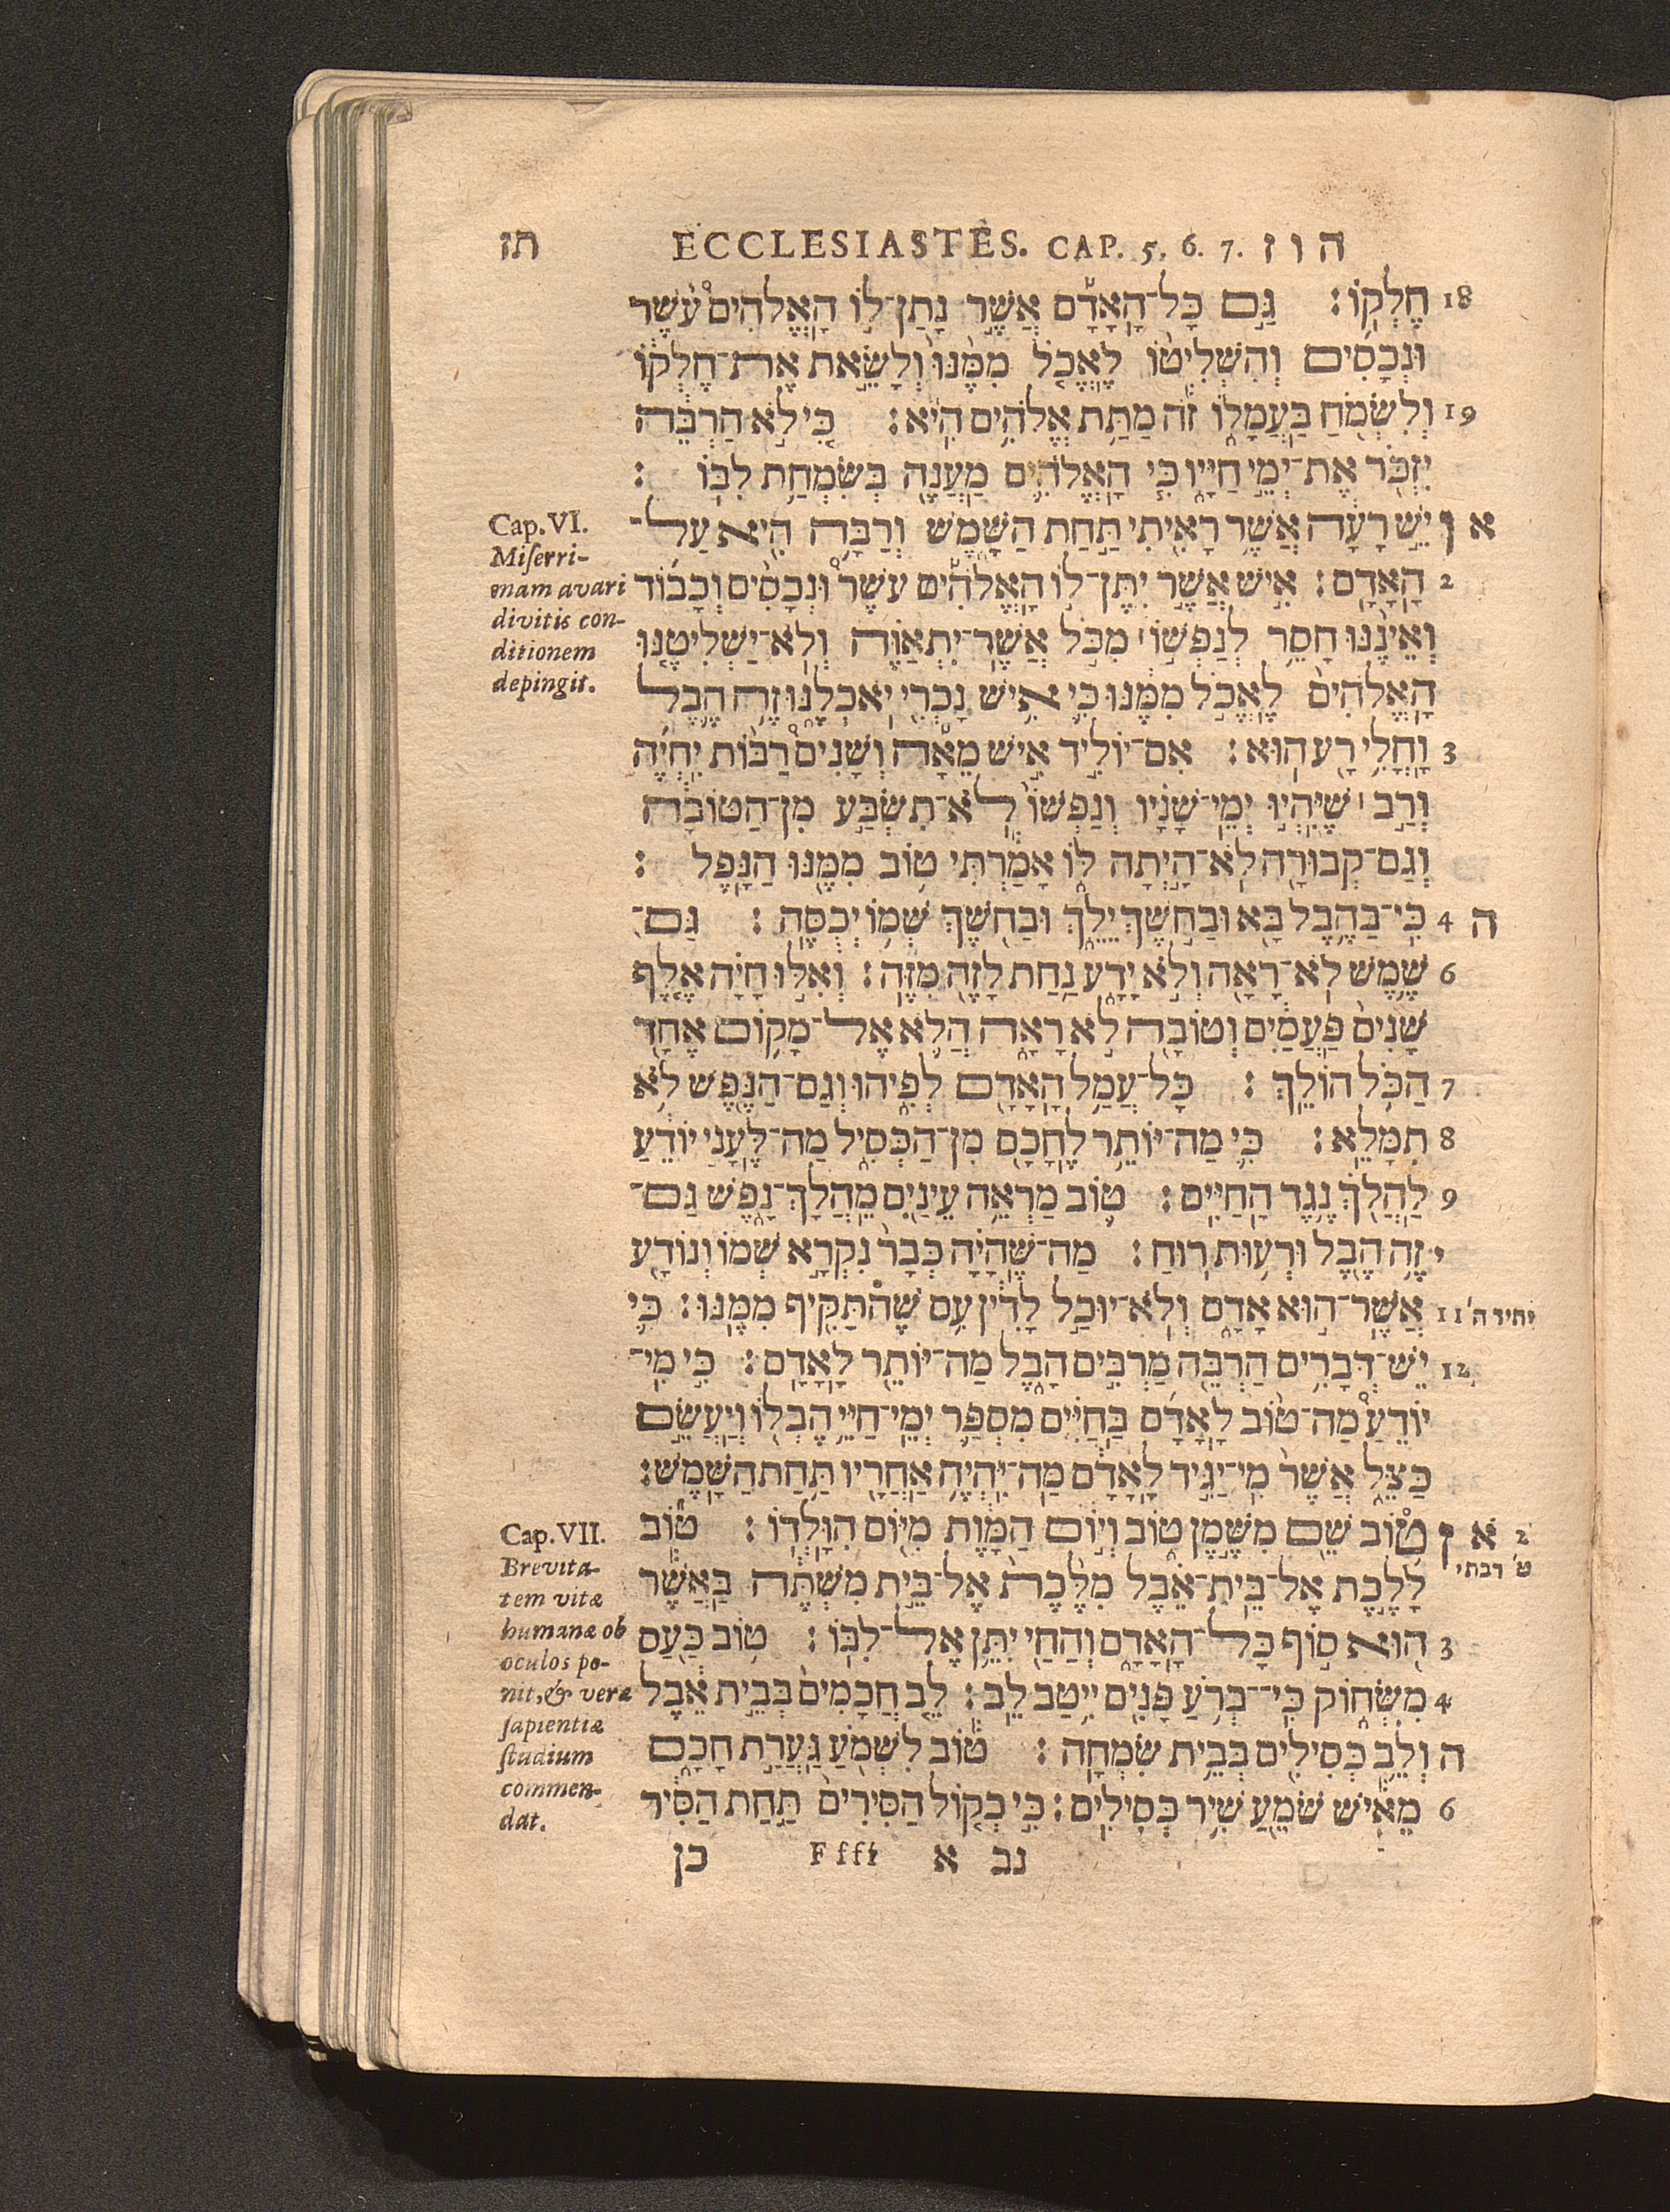 תז ECCLESIASTES. CAP. 5. 6. 7. ה ו ז
18 חֶלְקוֹ׃ גַּם כָּל־הָאָדָם אֲשֶׁר נָתַן־לוֹ הָאֱלֹהִים עֹשֶׁר
וּנְכָסִים וְהִשְׁלִיטוֹ לֶאֱכֹל מִמֶּנּוּ וְלָשֵׂאת אֶת־חֶלְקוֹ
19 וְלִשְׂמֹחַ בַּעֲמָלוֹ זֹה מַתַּת אֱלֹהִים הִיא׃ כִּי לֹא הַרְבֵּה
יִזְכֹּר אֶת־יְמֵי חַיָּיו כִּי הָאֱלֹהִים מַעֲנֶה בְּשִׂמְחַת לִבּוֹ׃
א ו יֵשׁ רָעָה אֲשֶׁר רָאִיתִי תַּחַת הַשָּׁמֶשׁ וְרַבָּה הִיא עַל־
2 הָאָדָם׃ אִישׁ אֲשֶׁר יִתֶּן־לוֹ הָאֱלֹהִים עֹשֶׁר וּנְכָסִים וְכָבוֹד
וְאֵינֶנּוּ חָסֵר לְנַפְשׁוֹ׀ מִכֹּל אֲשֶׁר־יִתְאַוֶּה וְלֹא־יַשְׁלִיטֶנּוּ
הָאֱלֹהִים לֶאֱכֹל מִמֶּנּוּ כִּי אִישׁ נָכְרִי יֹאכְלֶנּוּ זֶה הֶבֶל
3 וָחֳלִי רָע הוּא׃ אִם־יוֹלִיד אִישׁ מֵאָה וְשָׁנִים רַבּוֹת יִחְיֶה
וְרַב׀ שֶׁיִּהְיוּ יְמֵי־שָׁנָיו וְנַפְשׁוֹ לֹא־תִשְׂבַּע מִן־הַטּוֹבָה
וְגַם־קְבוּרָה לֹא־הָיְתָה לּוֹ אָמַרְתִּי טוֹב מִמֶּנּוּ הַנָּפֶל׃
ה 4 כִּי־בַהֶבֶל בָּא וּבַחֹשֶׁךְ יֵלֵךְ וּבַחֹשֶׁךְ שְׁמוֹ יְכֻסֶּה׃ גַּם־
6 שֶׁמֶשׁ לֹא־רָאָה וְלֹא יָדָע נַחַת לָזֶה מִזֶּה׃ וְאִלּוּ חָיָה אֶלֶף
שָׁנִים פַּעֲמַיִם וְטוֹבָה לֹא רָאָה הֲלֹא אֶל־מָקוֹם אֶחָד
7 הַכֹּל הוֹלֵךְ׃ כָּל־עֲמַל הָאָדָם לְפִיהוּ וְגַם־הַנֶּפֶשׁ לֹא
8 תִמָּלֵא׃ כִּי מַה־יּוֹתֵר לֶחָכָם מִן־הַכְּסִיל מַה־לֶּעָנִי יוֹדֵעַ
9 לַהֲלֹךְ נֶגֶד הַחַיִּים׃ טוֹב מַרְאֵה עֵינַיִם מֵהֲלָךְ־נָפֶשׁ גַּם־
י זֶה הֶבֶל וּרְעוּת רוּחַ׃ מַה־שֶּׁהָיָה כְּבָר נִקְרָא שְׁמוֹ וְנוֹדָע
יתיר ה׳ 11 אֲשֶׁר־הוּא אָדָם וְלֹא־יוּכַל לָדִין עִם שֶׁהתַּקִּיף מִמֶּנּוּ׃ כִּי
12 יֵשׁ־דְּבָרִים הַרְבֵּה מַרְבִּים הָבֶל מַה־יּוֹתֵר לָאָדָם׃ כִּי מִי־
יוֹדֵעַ מַה־טּוֹב לָאָדָם בַּחַיִּים מִסְפַּר יְמֵי־חַיֵּי הֶבְלוֹ וְיַעֲשֵׂם
כַּצֵּל אֲשֶׁר מִי־יַגִּיד לָאָדָם מַה־יִּהְיֶה אַחֲרָיו תַּחַת הַשָּׁמֶשׁ׃
2 א ז טוֹב שֵׁם מִשֶּׁמֶן טוֹב וְיוֹם הַמָּוֶת מִיּוֹם הִוָּלְדוֹ׃ טוֹב
ט׳ רבתי לָלֶכֶת אֶל־בֵּית־אֵבֶל מִלֶּכֶת אֶל־בֵּית מִשְׁתֶּה בַּאֲשֶׁר
3 הוּא סוֹף כָּל־הָאָדָם וְהַחַי יִתֵּן אֶל־לִבּוֹ׃ טוֹב כַּעַס
4 מִשְּׂחוֹק כִּי־בְרֹעַ פָּנִים יִיטַב לֵב׃ לֵב חֲכָמִים בְּבֵית אֵבֶל
ה וְלֵב כְּסִילִים בְּבֵית שִׂמְחָה׃ טוֹב לִשְׁמֹעַ גַּעֲרַת חָכָם
6 מֵאִישׁ שֹׁמֵעַ שִׁיר כְּסִילִים׃ כִּי כְקוֹל הַסִּירִים תַּחַת הַסִּיר
נב א Ffff כן
Cap. VI.
Miſerri-
mam avari
divitis con-
ditionem
depingit.
Cap. VII.
Brevita-
tem vitæ
humanæ ob
oculos po-
nit, & veræ
ſapientiæ
ſtudium
commen-
dat.